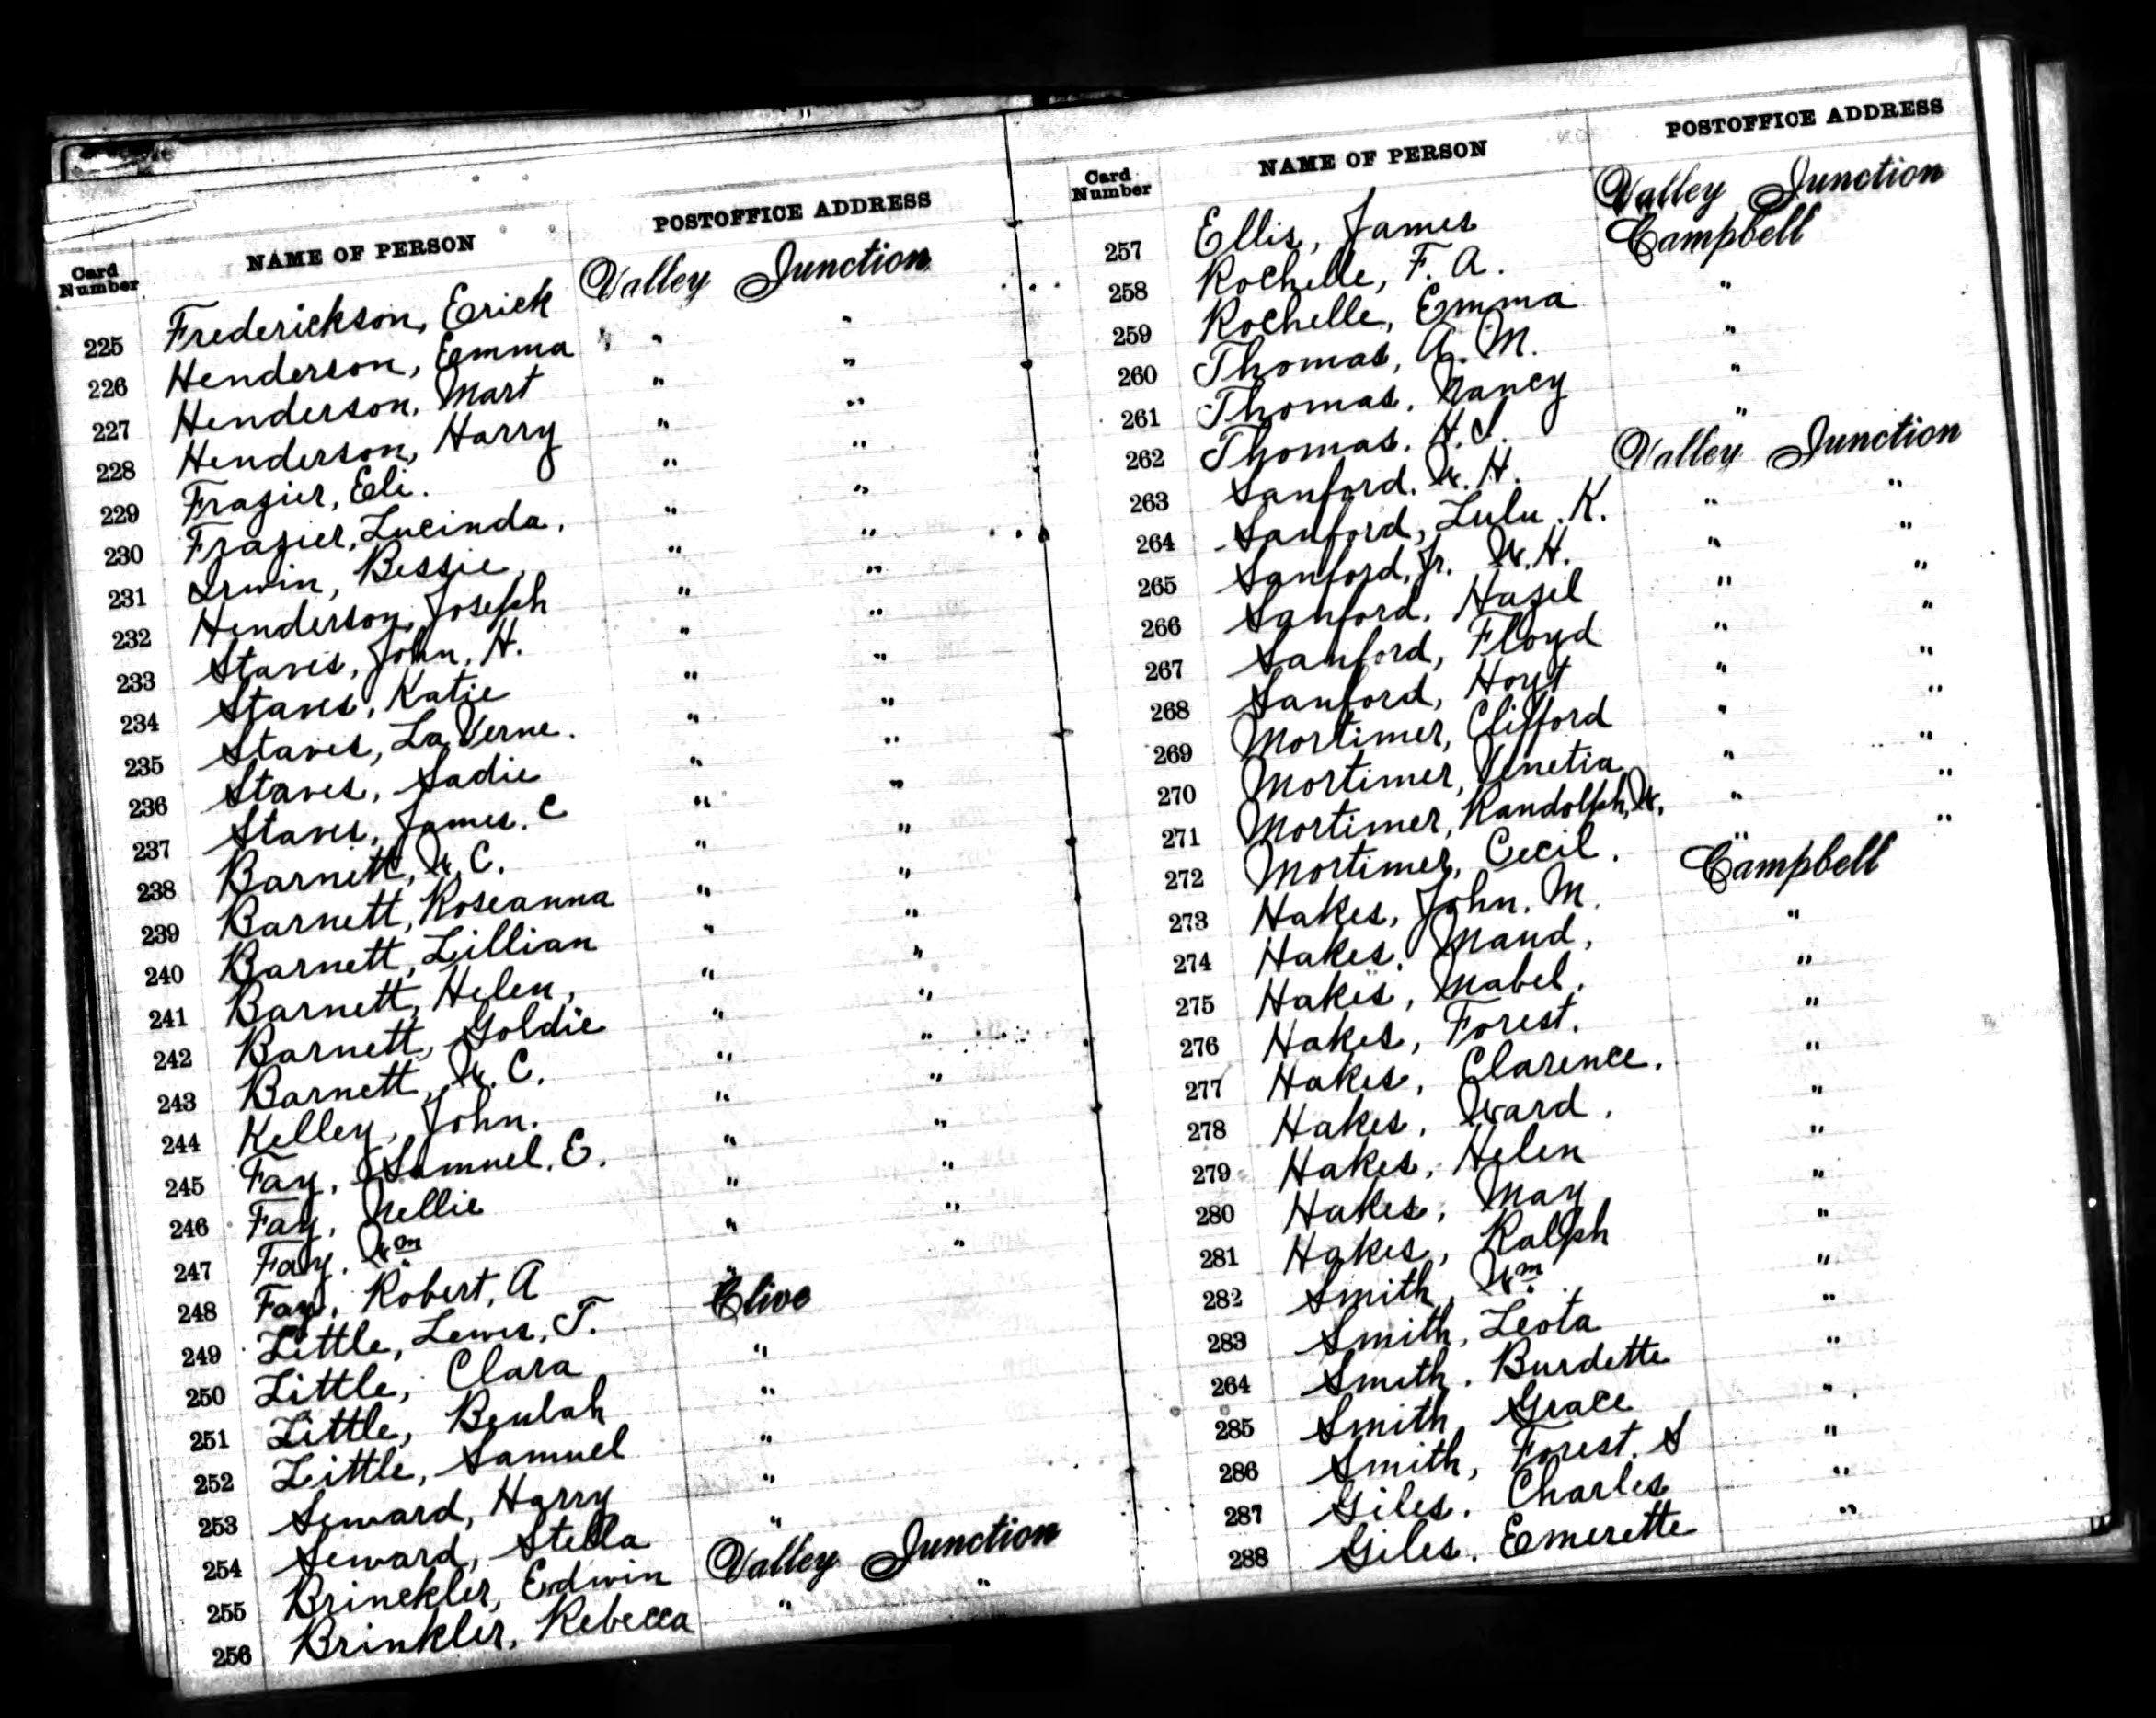 Card Number NAME OF PERSON POSTOFFICE ADDRESS
225 Frederickson, Erick Valley Junction
226 Henderson, Emma " "
227 Henderson, Mart " "
228 Henderson, Harry " "
229 Frazier, Eli. " "
230 Frazier, Lucinda, " "
231 Irwin, Bessie, " "
232 Henderson, Joseph " "
233 Staves, John, H. " "
234 Staves, Katie " "
235 Staves, La Verne. " "
236 Staves, Sadie " "
237 Staves, James. C " "
238 Barnett, W. C. " "
239 Barnett, Roseanna " "
240 Barnett, Lillian " "
241 Barnett, Helen, " "
242 Barnett, Goldie " "
243 Barnett, W. C. " "
244 Kelley, John. " "
245 Fay, Samuel. E. " "
246 Fay, Nellie " "
247 Fay, Wm " "
248 Fay, Robert, A " "
249 Little, Lewis, T. Clive
250 Little, Clara "
251 Little, Beulah "
252 Little, Samuel "
253 Seward, Harry "
254 Seward, Stella "
255 Brinckler, Edwin Valley Junction
256 Brinkler, Rebecca " "
Card Number NAME OF PERSON POSTOFFICE ADDRESS
257 Ellis, James Valley Junction
258 Rochelle, F. A. Campbell
259 Rochelle, Emma "
260 Thomas, A. M. "
261 Thomas, Nancy "
262 Thomas, H. I. "
263 Sanford, W. H. Valley Junction
264 Sanford, Lulu. K. " "
265 Sanford, Jr. W. H. " "
266 Sanford, Hazel " "
267 Sanford, Floyd " "
268 Sanford, Hoyt " "
269 Mortimer, Clifford " "
270 Mortimer, Venetia " "
271 Mortimer, Randolph, W. " "
272 Mortimer, Cecil. " "
273 Hakes, John. M. Campbell
274 Hakes, Maud, "
275 Hakes, Mabel, "
276 Hakes, Forest. "
277 Hakes, Clarence. "
278 Hakes, Ward, "
279 Hakes, Helen "
280 Hakes, May "
281 Hakes, Ralph "
282 Smith, Wm. "
283 Smith, Leota "
264 Smith, Burdette "
285 Smith, Grace "
286 Smith, Forest. S "
287 Giles, Charles "
288 Giles, Emerette "